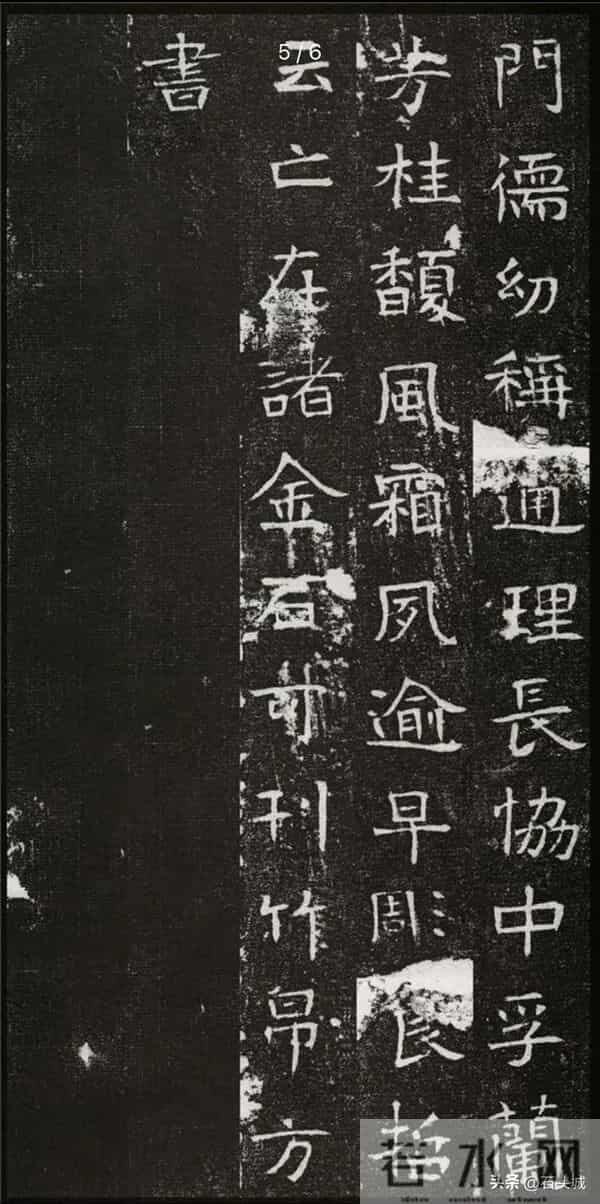 5/6
門儒幼稱通理長協中孚蘭
芳桂馥風霜夙逾早彫良哲
云亡在諸金石可刊竹帛方
書
头条 @石头城